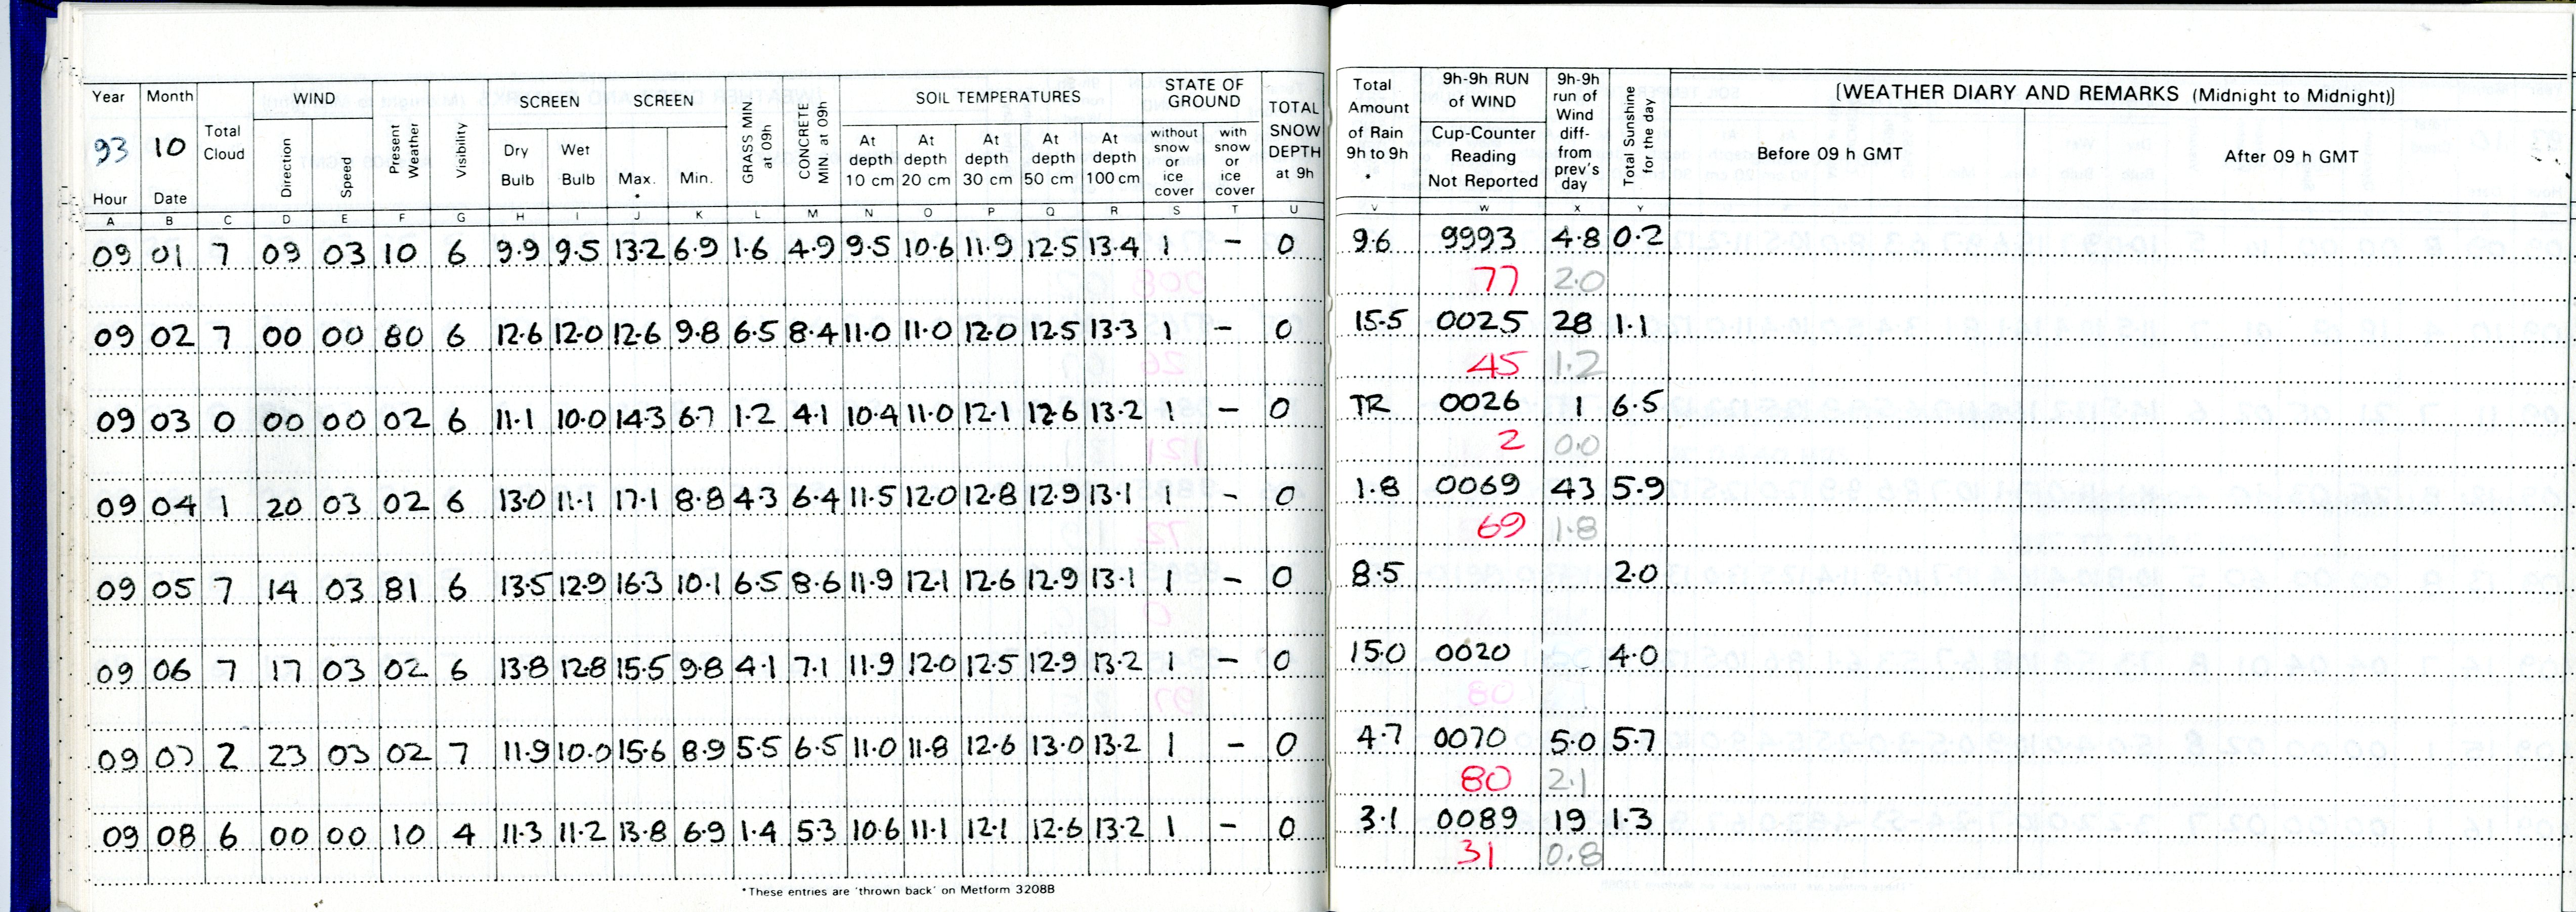 Year Month Total Cloud WIND Present Weather Visibility SCREEN SCREEN GRASS MIN. at 09h CONCRETE MIN. at 09h SOIL TEMPERATURES STATE OF GROUND TOTAL SNOW DEPTH at 9h Total Amount of Rain 9h to 9h * 9h-9h RUN of WIND 9h-9h run of Wind diff- from prev's day Total Sunshine for the day [WEATHER DIARY AND REMARKS (Midnight to Midnight)]
93 10 Direction Speed Dry Bulb Wet Bulb Max. * Min. At depth 10 cm At depth 20 cm At depth 30 cm At depth 50 cm At depth 100 cm without snow or ice cover with snow or ice cover Cup-Counter Reading Not Reported Before 09 h GMT After 09 h GMT
Hour Date
A B C D E F G H I J K L M N O P Q R S T U V W X Y
09 01 7 09 03 10 6 9.9 9.5 13.2 6.9 1.6 4.9 9.5 10.6 11.9 12.5 13.4 1 - 0 9.6 9993 4.8 0.2
77 2.0
09 02 7 00 00 80 6 12.6 12.0 12.6 9.8 6.5 8.4 11.0 11.0 12.0 12.5 13.3 1 - 0 15.5 0025 28 1.1
45 1.2
09 03 0 00 00 02 6 11.1 10.0 14.3 6.7 1.2 4.1 10.4 11.0 12.1 12.6 13.2 1 - 0 TR 0026 1 6.5
2 0.0
09 04 1 20 03 02 6 13.0 11.1 17.1 8.8 4.3 6.4 11.5 12.0 12.8 12.9 13.1 1 - 0 1.8 0069 43 5.9
69 1.8
09 05 7 14 03 81 6 13.5 12.9 16.3 10.1 6.5 8.6 11.9 12.1 12.6 12.9 13.1 1 - 0 8.5 2.0
09 06 7 17 03 02 6 13.8 12.8 15.5 9.8 4.1 7.1 11.9 12.0 12.5 12.9 13.2 1 - 0 15.0 0020 4.0
80
09 07 2 23 03 02 7 11.9 10.0 15.6 8.9 5.5 6.5 11.0 11.8 12.6 13.0 13.2 1 - 0 4.7 0070 5.0 5.7
80 2.1
09 08 6 00 00 10 4 11.3 11.2 13.8 6.9 1.4 5.3 10.6 11.1 12.1 12.6 13.2 1 - 0 3.1 0089 19 1.3
31 0.8
*These entries are 'thrown back' on Metform 3208B